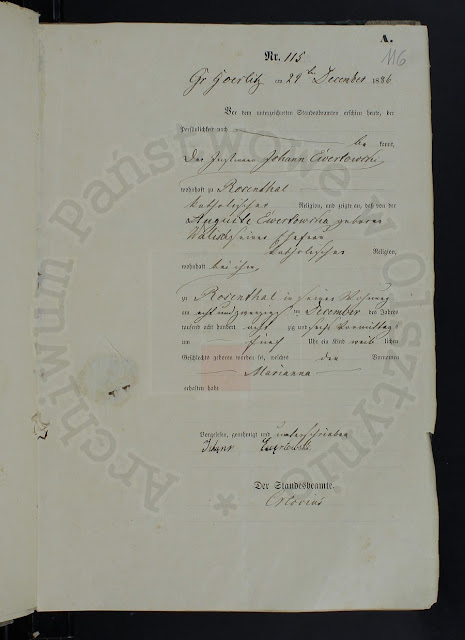 A.
116
Nr. 115
Gr Goerlitz am 29ten December 1886
Vor dem unterzeichneten Standesbeamten erschien heute, der
Persönlichkeit nach
be kannt,
Der Instmann Johann Ewertowski
wohnhaft zu Rosenthal
katholischer Religion, und zeigte an, daß von der
Auguste Ewertowska geborene
seiner Ehefrau
katholischer Religion,
wohnhaft bei ihm
zu Rosenthal in seiner Wohnung
am acht und zwanzigsten December des Jahres
tausend acht hundert acht zig und sechs Vormittags
um fünf Uhr ein Kind weib lichen
Geschlechts geboren worden sei, welches den Vornamen
Marianna
erhalten habe
Vorgelesen, genehmigt und unterschrieben
Johann Ewertowski
Der Standesbeamte.
Archiwum Państwowe Olsztynie *